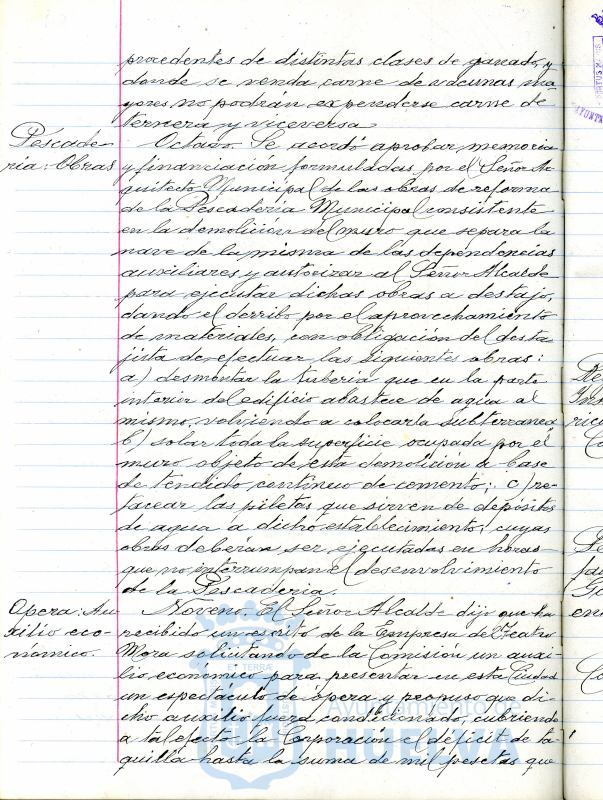 procedentes de distintas clases de ganado, y
donde se venda carne de vacunas ma-
yores no podrán expenderse carne de
ternera y viceversa
Pescade-
ria: Obras
Octavo. Se acordó aprobar memoria
y financiación formuladas por el Señor Ar
quitecto Municipal de las obras de reforma
de la Pescadería Municipal consistente
en la demolición del muro que separa la
nave de la misma de las dependencias
auxiliares y autorizar al Señor Alcalde
para ejecutar dichas obras a destajo,
dando el derribo por el aprovechamiento
de materiales, con obligación del desta-
jista de efectuar las siguientes obras:
a) desmontar la tubería que en la parte
interior del edificio abastece de agua al
mismo, volviendo a colocarla subterranea
b) solar toda la superficie ocupada por el
muro objeto de esta demolición a base
de tendido contínuo de cemento; c) re-
tacear las piletas que sirven de depósitos
de agua a dicho establecimiento; cuyas
obras deberán ser ejecutadas en horas
que no interrumpan el desenvolvimiento
de la Pescadería.
Opera: Au
xilio eco-
nómico.
Noveno. El Señor Alcalde dijo que ha
recibido un escrito de la Empresa del Teatro
Mora solicitando de la Comisión un auxi
lio económico para presentar en esta Ciudad
un espectáculo de ópera y propuso que di
cho auxilio fuera condicionado, cubriendo
a tal efecto la Corporación el déficit de ta-
quilla hasta la suma de mil pesetas que
Ayuntamiento de
HUELVA